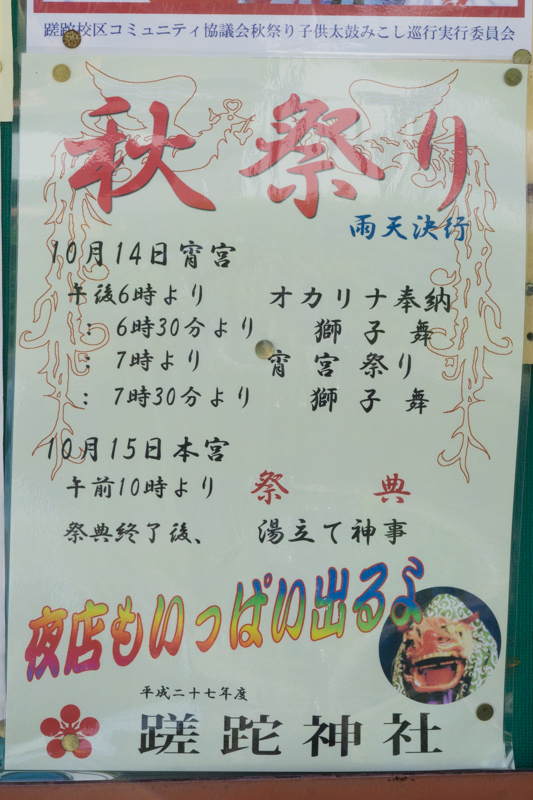 蹉跎校区コミュニティ協議会秋祭り子供太鼓みこし巡行実行委員会
秋祭り
雨天決行
10月14日宵宮
午後6時より オカリナ奉納
： 6時30分より 獅子舞
： 7時より 宵宮祭り
： 7時30分より 獅子舞
10月15日本宮
午前10時より 祭典
祭典終了後、 湯立て神事
夜店もいっぱい出るよ
平成二十七年度
蹉跎神社